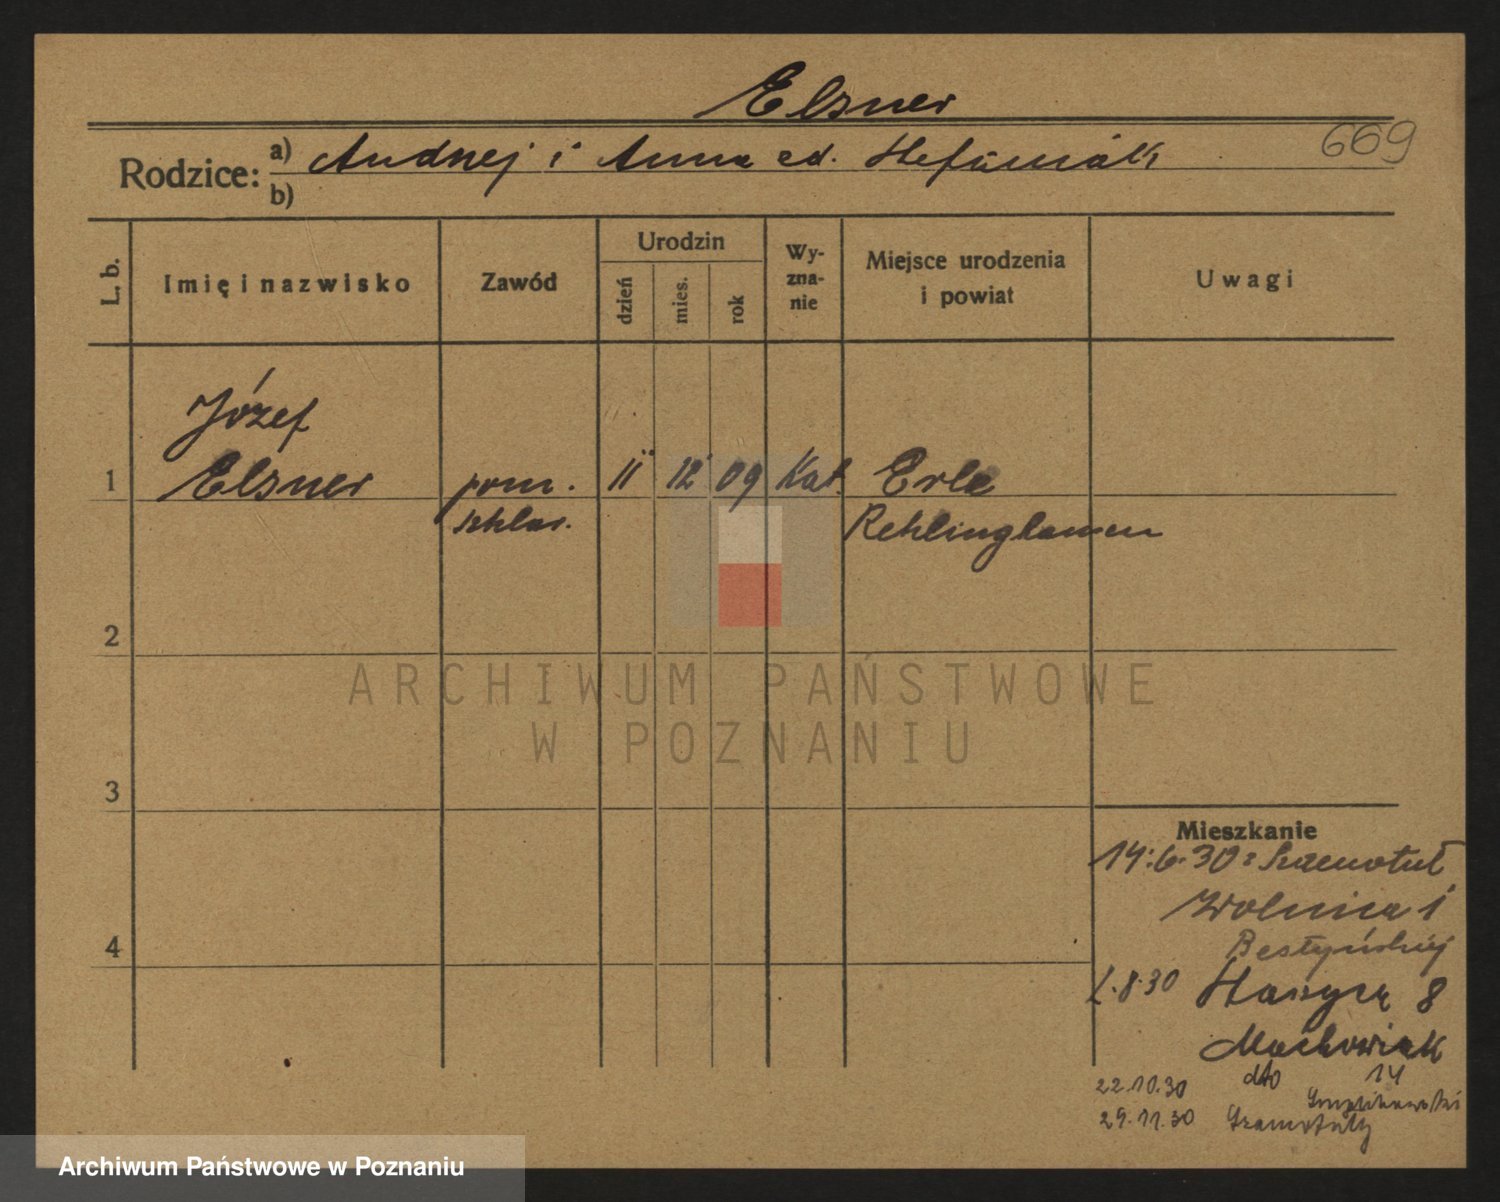 Elsner
669
Rodzice: a) Andrzej i Anna
b)
L. b.
Imię i nazwisko
Zawód
Urodzin
dzień
mies.
rok
Wy-
zna-
nie
Miejsce urodzenia
i powiat
Uwagi
Józef
1 Elsner pom. 11 12 09 Kat. Erle
Reklinghausen
2
ARCHIWUM PAŃSTWOWE
W POZNANIU
3
Mieszkanie
14.6.30
Wolnica 1
4
8.30
8
Maćkowiak
22.10.30 dto 14
29.11.30 Szamotuły
Archiwum Państwowe w Poznaniu